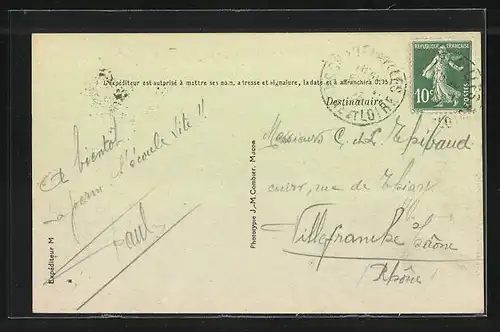 L'expéditeur est autorisé à mettre ses nom, adresse et signature, la date et à affranchir à 0,15
Destinataire
RÉPUBLIQUE FRANÇAISE
10c
POSTES
ET LOIRE
A bientôt
s'écoule vite !!
Paul
Expéditeur M
Phototype J.-M. Combier, Macon
Messieurs C. & L. Thibaud
cuirs, rue de Thiars
Villefranche s/ Saône
Rhône